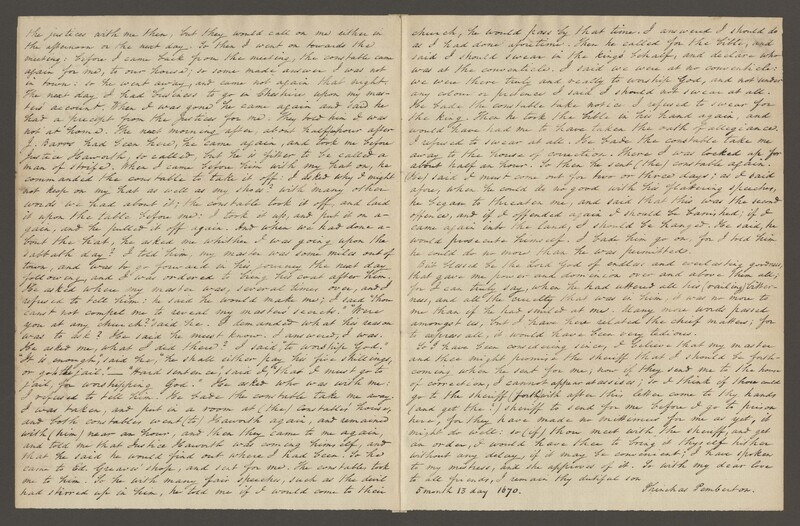 the justices with me then, but they would call on me either in
the afternoon or the next day. So then I went on towards the
meeting: before I came back from the meeting, the constable came
again for me, to our house; so some made answer I was not
in town: so he went away, and came not again that night.
The next day I had business to go in Cheshire upon my mas-
ter's account. When I was gone he came again and said he
had a precept from the justices for me. They told him I was
not at home. The next morning after, about half hour after
I. Barns had been here, he came again, and took me before
Justice Haworth, so called, but he is fitter to be called a
man of strife. When I came before him with my hat on, he
commanded the constable to take it off. I asked why I might
not keep on my hat as well as my shoes? with many other
words we had about it; the constable took it off, and laid
it upon the table before me: I took it up, and put it on a-
gain, and he pulled it off again. And when we had done a-
bout the hat, he asked me whither I was going upon the
sabbath day? I told him, my master was some miles out of
town, and was to go forward in his journey the next day
following, and I was ordered to bring his horse after him.
He asked where my master was, several times over, and I
refused to tell him: he said he would make me; I said "thou
canst not compel me to reveal my master's secrets." "Were
you at any church?" said he. I demanded what his reason
was to ask? He said he must know. I answered, I was.
He asked me, what I did there? I said, "to worship God."
"It is enough," said he, "he shall either pay his five shillings,
or go to the jail." — "Hard sentence", said I, "that I must go to
jail, for worshipping God." He asked who was with me:
I refused to tell him. He bade the constable take me away.
I was taken, and put in a room at (the) constable's house,
and both constables went (to) Haworth again, and remained
with (him) near an hour, and then they came to me again,
and told me that Justice Haworth was coming himself, and
that he said he would find out where I had been. So he
came to Ed. Greaves' shop, and sent for me. The constable took
me to him. So he with many fair speeches, such as the devil
had stirred up in him, he told me if I would come to their
church, he would pass by that time. I answered I should do
as I had done aforetime. Then he called for the bible, and
said I should swear in the king's behalf, and declare who
was at the conventicle. I said we were at no conventicle:
we were there truly and really to worship God, and not under
any colour or pretence. I said I should not swear at all.
He bade the constable take notice I refused to swear for
the king. Then he took the bible in his hand again, and
would have had me to have taken the oath of allegiance.
I refused to swear at all. He bade the constable take me
away to the house of correction. There I was locked up for
about half an hour. So then he sent (the) constable again.
(He) said I must come out for two or three days; as I said
afore, when he could do no good with his flattering speeches,
he began to threaten me, and said that this was the second
offence, and if I offended again I should be banished; if I
came again into the land, I should be hanged. He said, he
would prosecute himself. I bade him go on; for I told him
he could do no more than he was permitted.
But blessed be the Lord God of endless and everlasting goodness,
that gave me power and dominion over and above them all;
for I can truly say, when he had uttered all his (railing) bitter-
ness, and all the cruelty that was in him, it was no more to
me than if he had smiled at me. Many more words passed
amongst us, but I have here related the chief matters; for
to express all, it would have been very tedious.
So I have been considering since, I believe that my master
and thee might promise the sheriff that I should be forth-
coming when he sent for me; now if they send me to the house
of correction, I cannot appear at assizes; so I think if thou could
go to the sheriff (forth)with after this letter come to thy hands
(and get the ) sheriff to send for me before I go to prison
here, for they have made no mittimus for me as yet, it
might do well: so (if) thou meet with the sheriff, and get
an order, I would have thee to bring it thyself hither
without any delay, if it may be convenient; I have spoken
to my mistress, and she approves of it. So with my dear love
to all friends, I remain thy dutiful son
5 month 13 day 1670. Phinehas Pemberton.